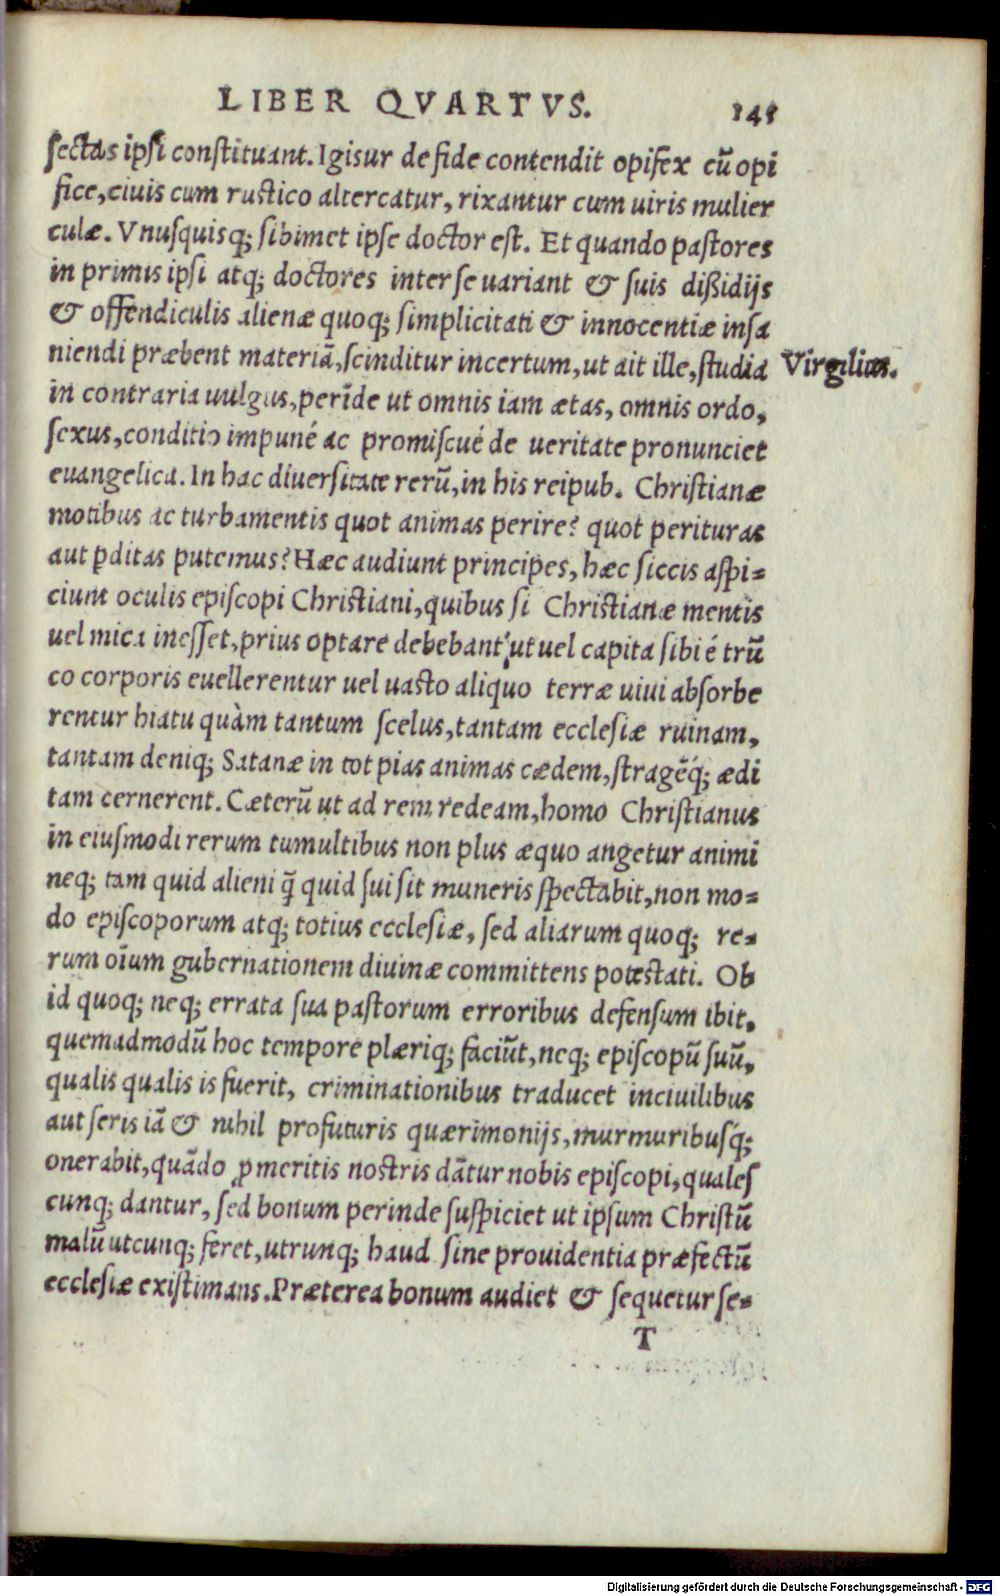 LIBER QVARTVS. 145
sectas ipsi constituant. Igisur de fide contendit opifex cũ opi
fice, ciuis cum rustico altercatur, rixantur cum uiris mulier
culæ. Vnusquisq; sibimet ipse doctor est. Et quando pastores
in primis ipsi atq; doctores inter se uariant & suis dißidijs
& offendiculis alienæ quoq; simplicitati & innocentiæ insa
niendi præbent materiã, scinditur incertum, ut ait ille, studia
Virgilius.
in contraria uulgus, perĩde ut omnis iam ætas, omnis ordo,
sexus, conditio impuné ac promiscué de ueritate pronunciet
euangelica. In hac diuersitate rerũ, in his reipub. Christianæ
motibus ac turbamentis quot animas perire? quot perituras
aut ꝑditas putemus? Hæc audiunt principes, hæc siccis aspi=
ciunt oculis episcopi Christiani, quibus si Christianæ mentis
uel mica inesset, prius optare debebant, ut uel capita sibi é trũ
co corporis euellerentur uel uasto aliquo terræ uiui absorbe
rentur hiatu quàm tantum scelus, tantam ecclesiæ ruinam,
tantam deniq; Satanæ in tot pias animas cædem, stragẽq́; ædi
tam cernerent. Cæterũ ut ad rem redeam, homo Christianus
in eiusmodi rerum tumultibus non plus æquo angetur animi
neq; tam quid alieni q̃ quid sui sit muneris spectabit, non mo=
do episcoporum atq; totius ecclesiæ, sed aliarum quoq; re=
rum oĩum gubernationem diuinæ committens potestati. Ob
id quoq; neq; errata sua pastorum erroribus defensum ibit,
quemadmodũ hoc tempore plæriq; faciũt, neq; episcopũ suũ,
qualis qualis is fuerit, criminationibus traducet inciuilibus
aut seris iã & nihil profuturis quærimonijs, murmuribusq́;
onerabit, quãdo ꝓ meritis nostris dãtur nobis episcopi, quales
cunq; dantur, sed bonum perinde suspiciet ut ipsum Christũ
malũ utcunq; feret, utrunq; haud sine prouidentia præfectũ
ecclesiæ existimans. Præterea bonum audiet & sequetur se=
T
Digitalisierung gefördert durch die Deutsche Forschungsgemeinschaft - DFG